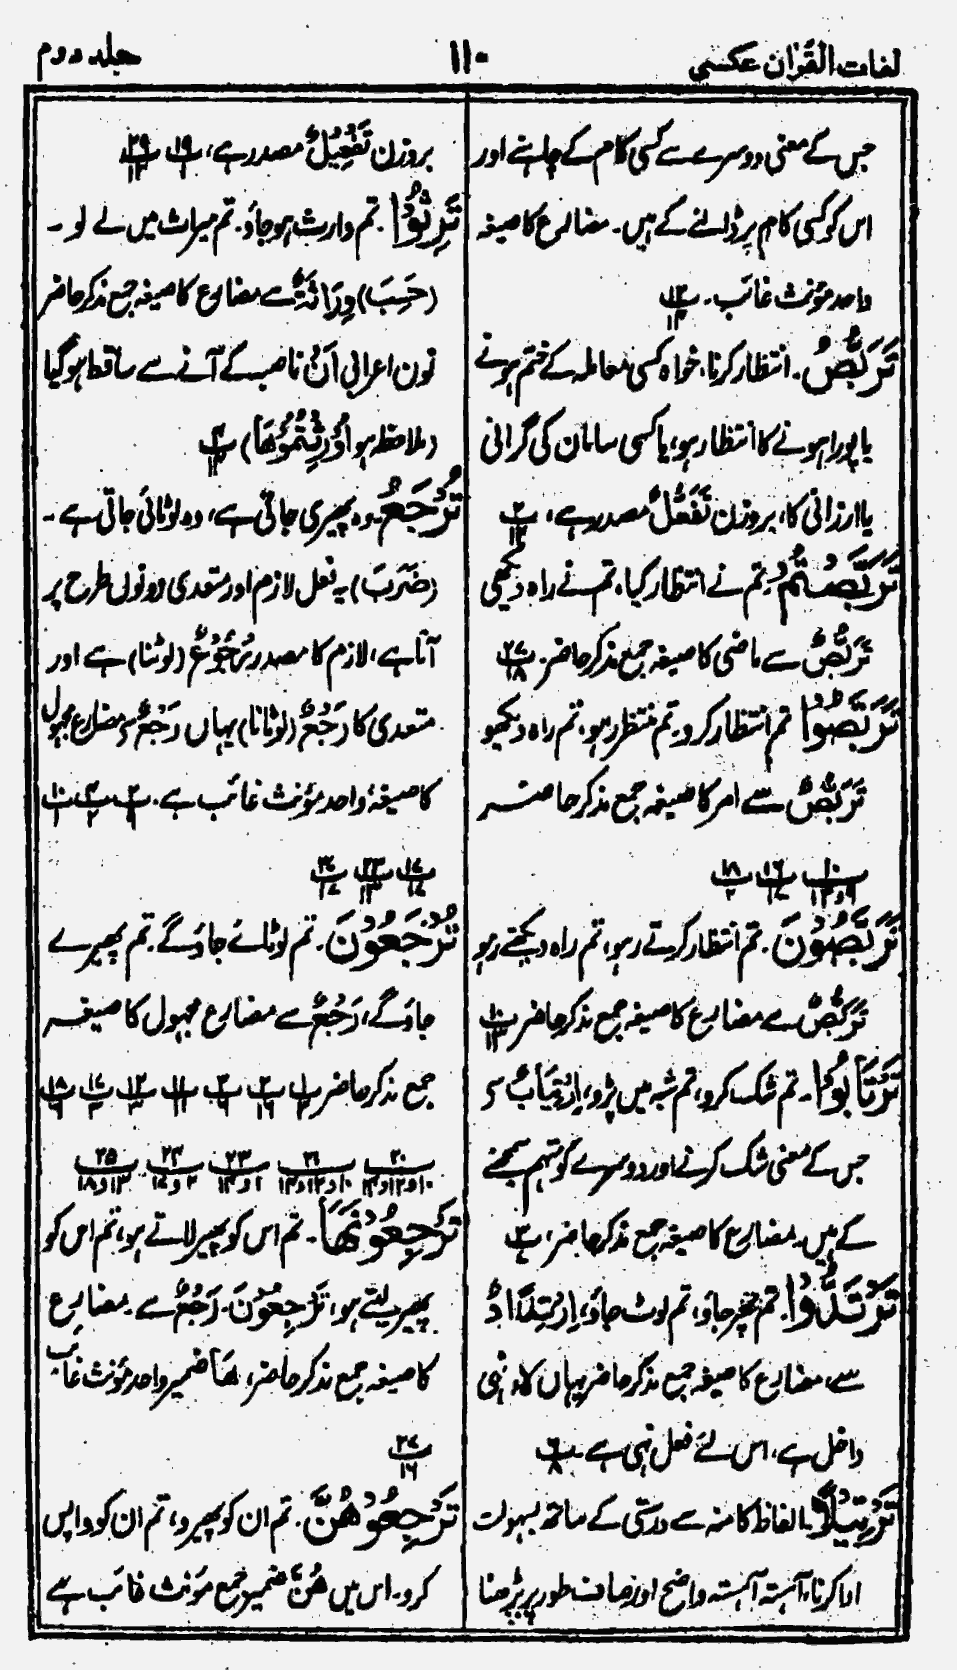 لغات القرآن عکسی
۱۱۰
جلد دوم
جس کے معنی دوسرے سے کسی کام کے چاہنے اور
اس کو کسی کام پر ڈالنے کے ہیں۔ مضارع کا صیغہ
واحد مؤنث غائب۔
تَرَبُّصُ۔ انتظار کرنا، خواہ کسی معاملہ کے ختم ہونے
یا پورا ہونے کا انتظار ہو، یا کسی سامان کی گرانی
یا ارزانی کا، بروزن تَفَعُّلٌ مصدر ہے،
تَرَبَّصْتُمْ۔ تم نے انتظار کیا، تم نے راہ دیکھی
تَرَبُّصٌ سے ماضی کا صیغہ جمع مذکر حاضر۔ ۲۷/۱۸
تَرَبَّصُوْا تم انتظار کرو۔ تم منتظر رہو، تم راہ دیکھو
تَرَبُّصٌ سے امر کا صیغہ جمع مذکر حاضر
۱۰/۹و۱۳ ۱۶/۱۷ ۱۸/۲
تَرَبَّصُوْنَ۔ تم انتظار کرتے رہو، تم راہ دیکھتے رہو
تَرَبُّصٌ سے مضارع کا صیغہ جمع مذکر حاضر ۱۰/۱۳
تَرْتَابُوْا۔ تم شک کرو، تم شبہ میں پڑو، اِرْتِیَابٌ سے
جس کے معنی شک کرنے اور دوسرے کو متہم سمجھنے
کے ہیں۔ مضارع کا صیغہ جمع مذکر حاضر، ۳/۷
تَرْتَدُّوْا۔ تم پھر جاؤ، تم لوٹ جاؤ، اِرْتِدَادٌ
سے، مضارع کا صیغہ جمع مذکر حاضر یہاں لاء نہی
داخل ہے، اس لئے فعل نہی ہے۔ ۶/۸
تَرْتِیْلًا۔ الفاظ کا منہ سے درستی کے ساتھ بسہولت
ادا کرنا، آہستہ آہستہ واضح اور صاف طور پر پڑھنا
بروزن تَفْعِیْلٌ مصدر ہے، ۱۹/۱ ۲۹/۱۳
تَرِثُوْا۔ تم وارث ہو جاؤ۔ تم میراث میں لے لو۔
(حَسِبَ) وِرَاثَۃٌ سے مضارع کا صیغہ جمع مذکر حاضر
نون اعرابی اَنْ ناصب کے آنے سے ساقط ہو گیا
(ملاحظہ ہو اُوْرِثْتُمُوْھَا) ۴/۱۴
تُرْجَعُ۔ وہ پھیری جاتی ہے، وہ لوٹائی جاتی ہے۔
(ضَرَبَ) یہ فعل لازم اور متعدی دونوں طرح پر
آتا ہے، لازم کا مصدر رُجُوْعٌ (لوٹنا) ہے اور
متعدی کا رَجْعٌ (لوٹانا) یہاں رَجْعٌ سے مضارع مجہول
کا صیغۂ واحد مؤنث غائب ہے۔ ۲/۹ ۴/۲ ۱۰/۱
۱۷/۱۷ ۲۲/۱۳ ۲۷/۱۷
تُرْجَعُوْنَ۔ تم لوٹائے جاؤ گے۔ تم پھیرے
جاؤ گے، رَجْعٌ سے مضارع مجہول کا صیغہ
جمع مذکر حاضر
۲۰/۱۰و۱۲و۱۴ ۲۱/۱۰و۱۲و۱۴ ۲۳/۱و۱۴ ۲۴/۲و۱۷ ۲۵/۱۳و۱۸
تَرْجِعُوْنَھَا۔ تم اس کو پھیر لاتے ہو، تم اس کو
پھیر لیتے ہو، تَرْجِعُوْنَ۔ رَجْعٌ سے۔ مضارع
کا صیغہ جمع مذکر حاضر، ھَا ضمیر واحد مؤنث غائب
۲۷/۱۶
تَرْجِعُوْھُنَّ۔ تم ان کو پھیرو، تم ان کو واپس
کرو۔ اس میں ھُنَّ ضمیر جمع مؤنث غائب ہے